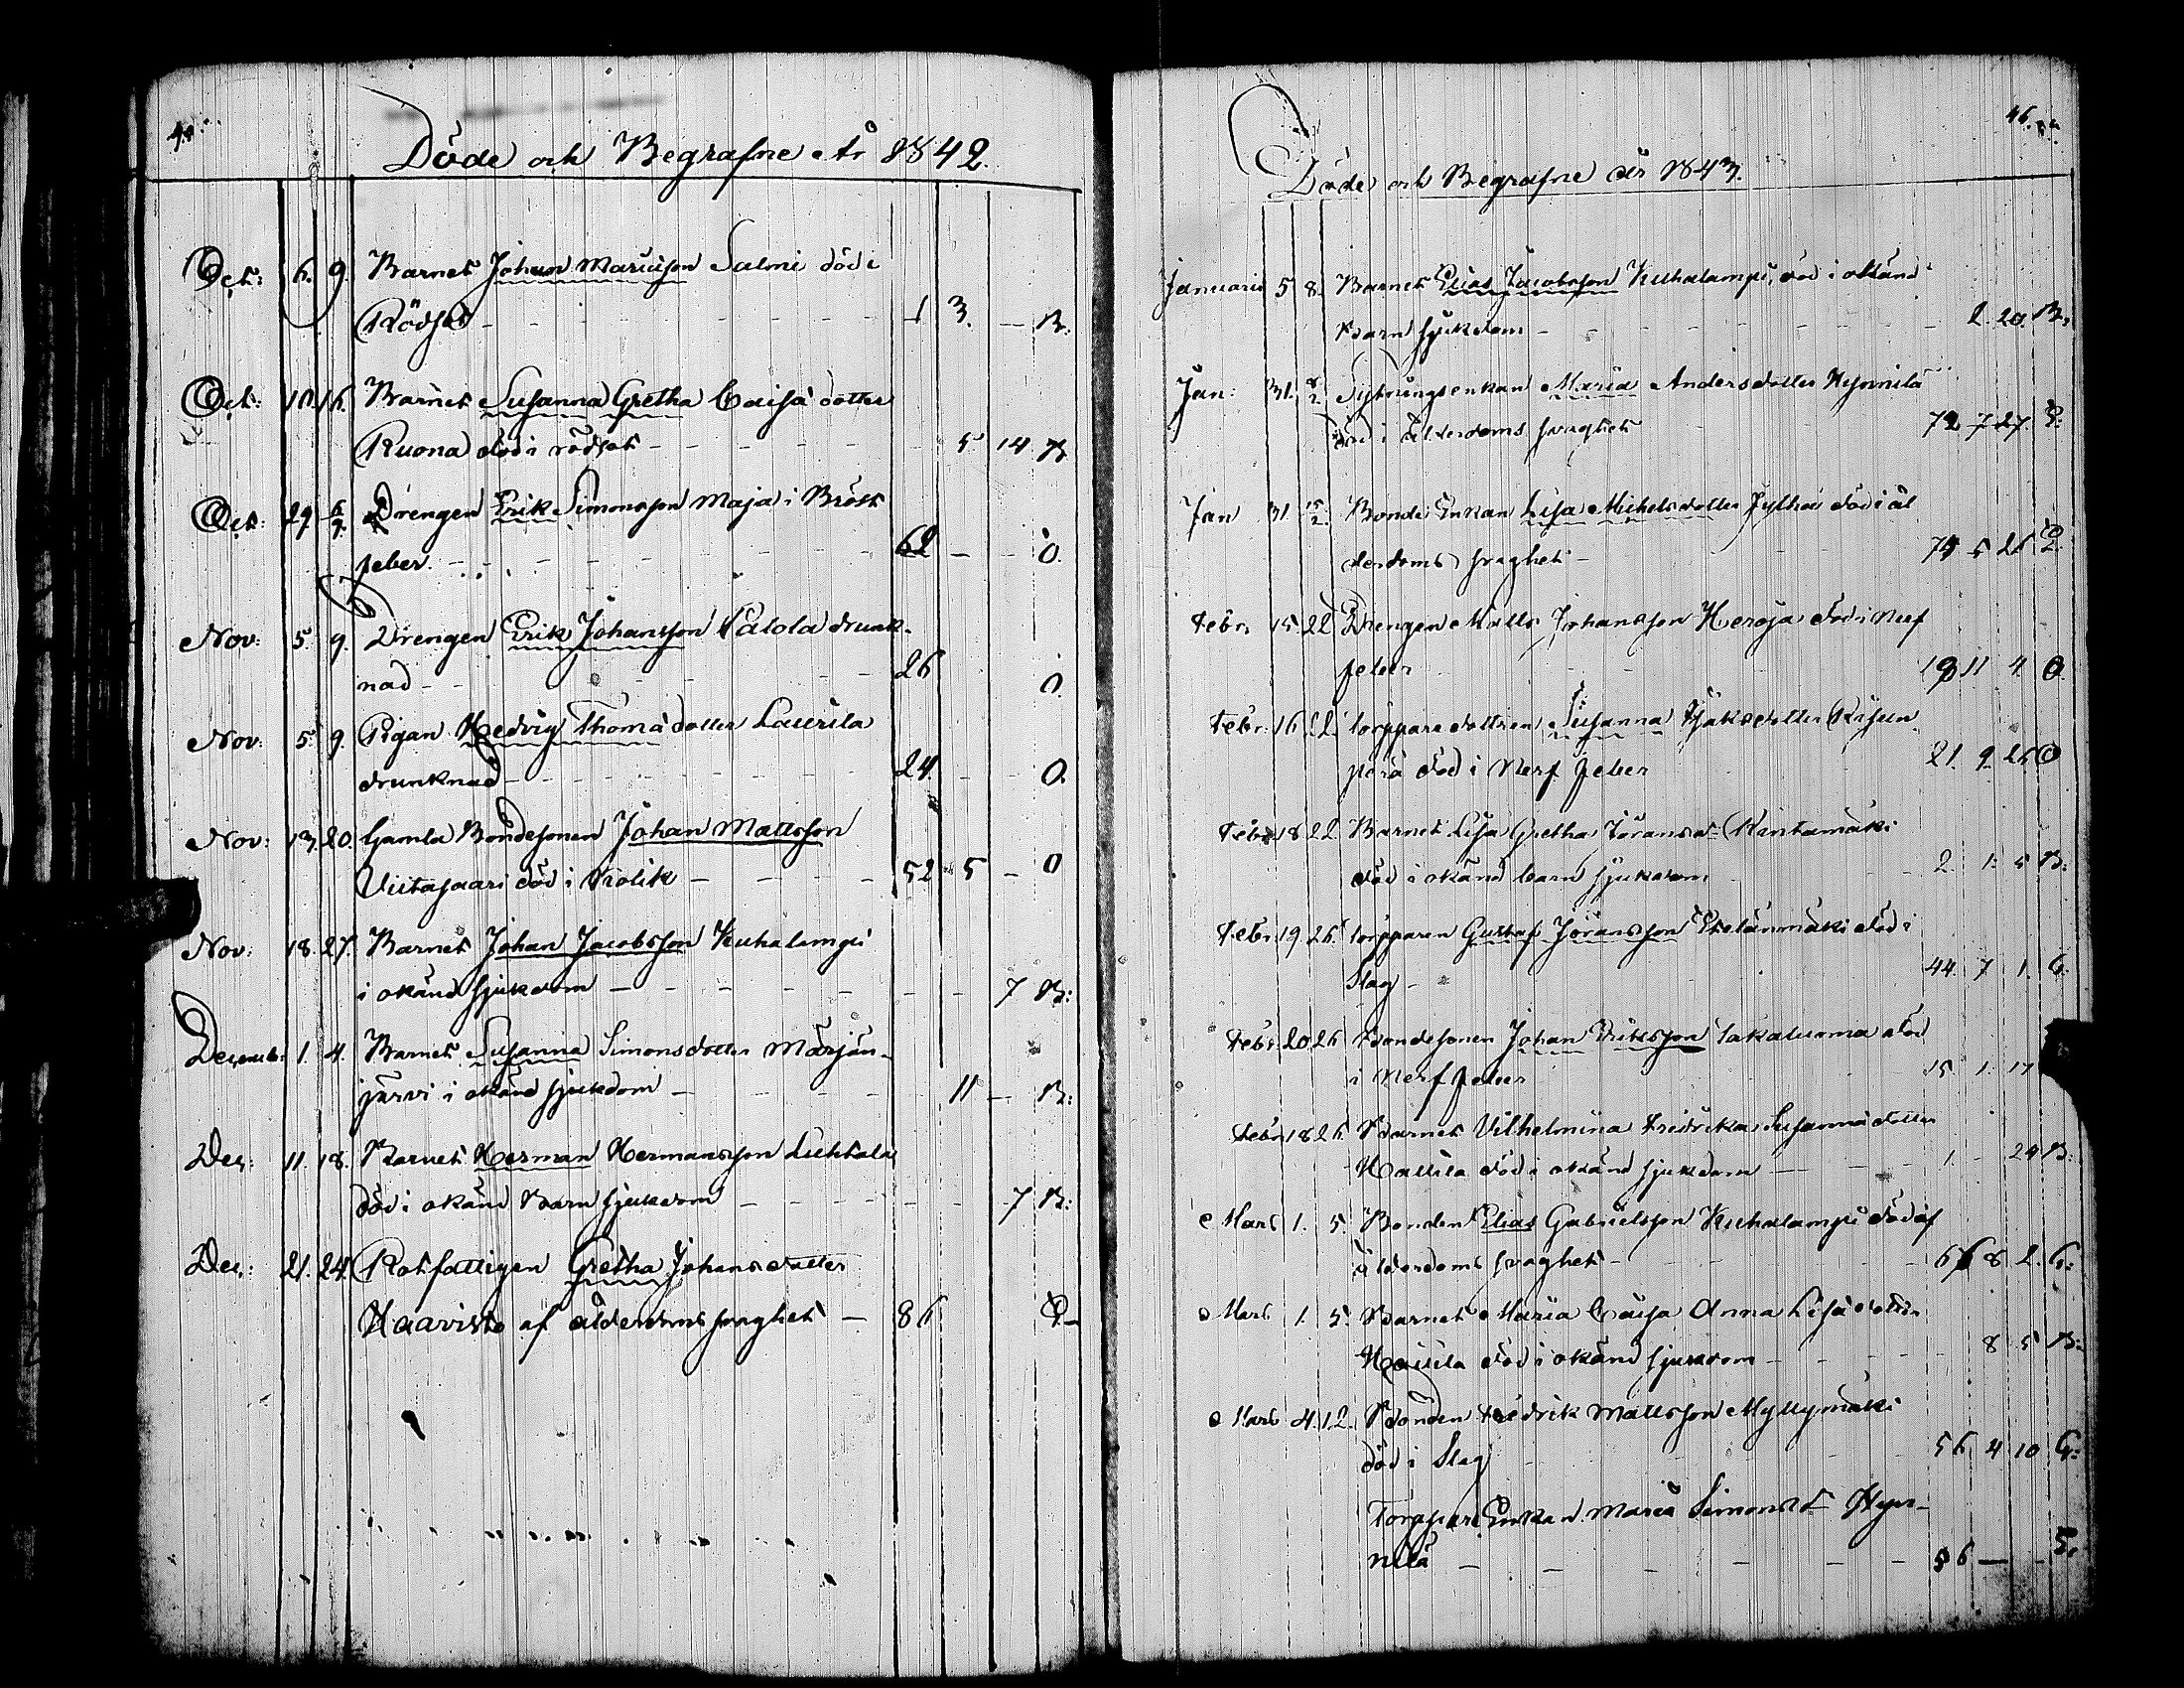 Döde och Begrafne År 1842.
Oct: 6. 9. Barnet Johan Mariäson Salmi död i
Rödsot - 1 3. - B:
Oct: 10. 16. Barnet Susanna Gretha Caisä dotter
Ruona död i rödsot - 5 14 B
Oct: 29 6/9. Drengen Erik Simonsson Maja i Bröst
feber. - 62 - - O.
Nov: 5. 9. Drengen Erik Johansson Palola drunk-
nad - 26 O.
Nov: 5. 9. Pigan Hedvig Thomädotter Laurila
drunknad - 24. - - O.
Nov: 13. 20. Gamla Bondesonen Johan Mattsson
Viitasaari död i Kolik - 52 5 - O
Nov: 18. 27. Barnet Johan Jacobsson Kuhalampi
i okänd sjukdom - 7 B:
December 1. 4. Barnet Susanna Simonsdotter Marjän-
järvi i okänd sjukdom - 11 - B:
Dec: 11. 18. Barnet Herman Hermansson Luhtala
död i okänd Barn sjukdom - 7 B:
Dec: 21. 24. Rotfattigen Gretha Johansdotter
Haavisto af ålderdomssvaghet - 86
46.
Döde och Begrafne år 1843.
Januarii 5 8. Barnet Elias Jacobsson Kuhalampi, död i okänd
Barn sjukdom - 2. 20. B:
Jan: 31. 8/2. Sytningsenkan Maria Andersdotter Hynnilä
död i Ålderdoms svaghet 72 7 27
Jan 31. 15/2. Bonde Enkan Lisa Michelsdotter Jylhä död i ål
derdoms svaghet - 75 5 26
Febr. 15 22 Drengen Matts Johansson Heroja död i Nerf
feber - 19 11 4. O
Febr. 16 22. torppare dottren Susanna Isaksdotter
perä död i Nerf feber 21. 9. 26 O
Febr. 18 22 Barnet Lisa Gretha Jöransd: Rintamäki
död i okänd barn sjukdom 2. 1. 5 B:
Febr. 19. 26. torpparen Gustaf Jöransson Etelänmäki död i
Slag - 44. 7 1. G.
Febr. 20 26 Bondesonen Johan Eriksson Takaluoma död
i Nerf feber 15. 1. 17
Febr. 18 26. Barnet Vilhelmina Fredrika Susannädotter
Hallila död i okänd sjukdom - 1. - 24 B:
Mars 1. 5. Bonden Elias Gabrielsson Kuhalampi död af
ålderdoms svaghet - 66 8 2. G:
Mars 1. 5. Barnet Maria Caisa Anna Lisädotter
Hallila död i okänd sjukdom - 8 5 B:
Mars 4. 12. Bonden Fredrik Mattsson Myllymäki
död i Slag - 56 4 10 G:
Torppare Enkan Maria Simonsd: Hyn-
nilä - 56 - -